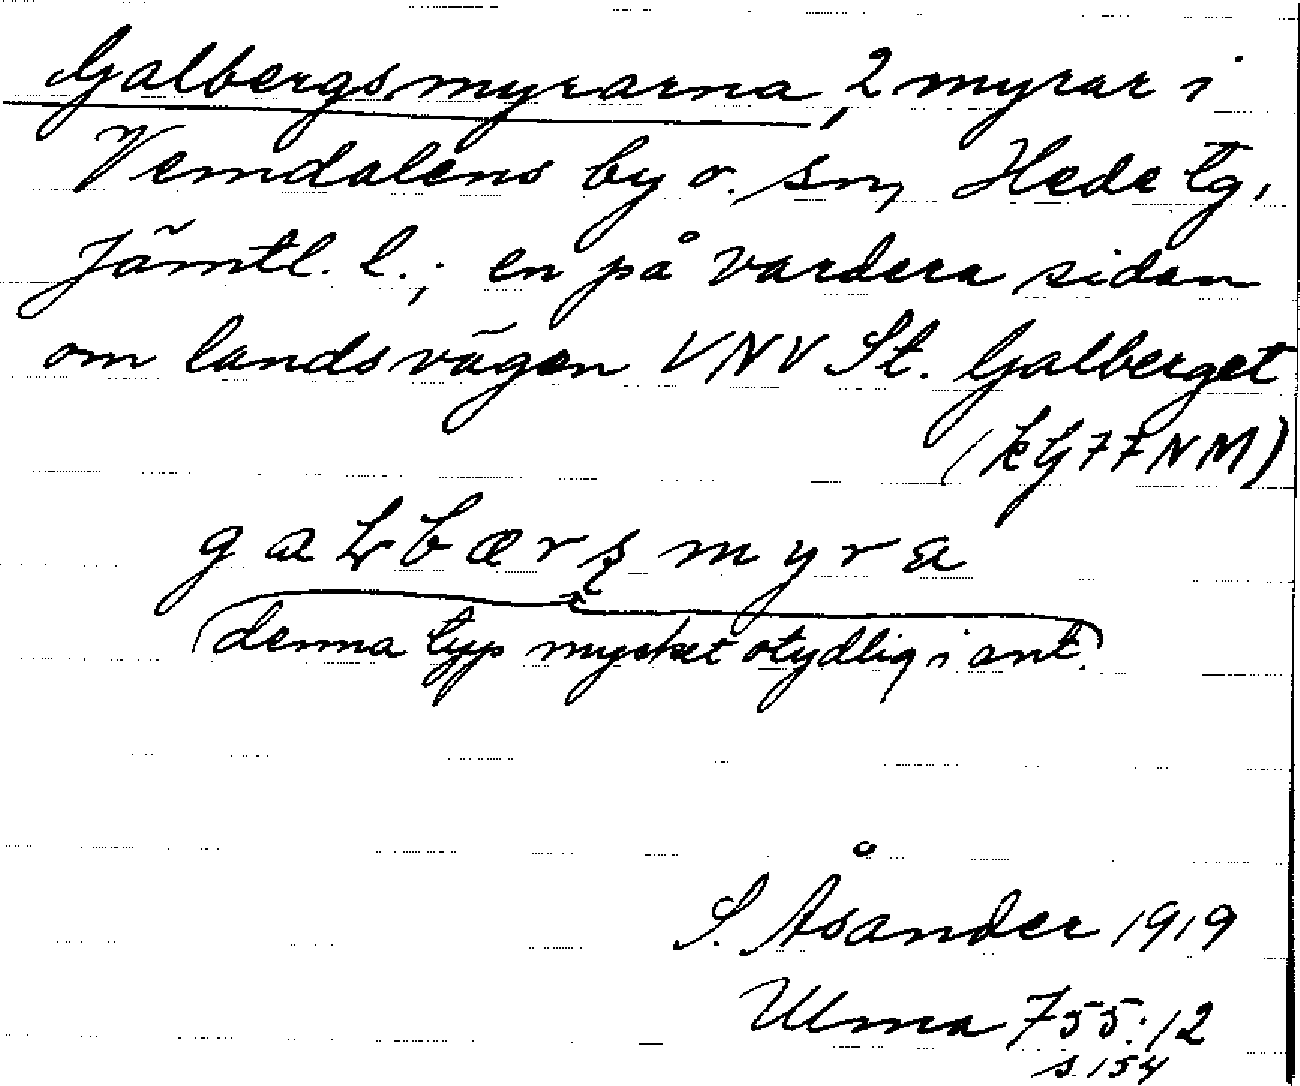 Galbergsmyrarna, 2 myrar i
Vemdalens by o. sn, Hede tg,
Jämtl. l.; en på vardera sidan
om landsvägen VNV St. Galberget
(kG77NM)
gaLbærsmyra
denna typ mycket otydlig i ant.
S. Åsander 1919
Ulma 755:12
s. 154